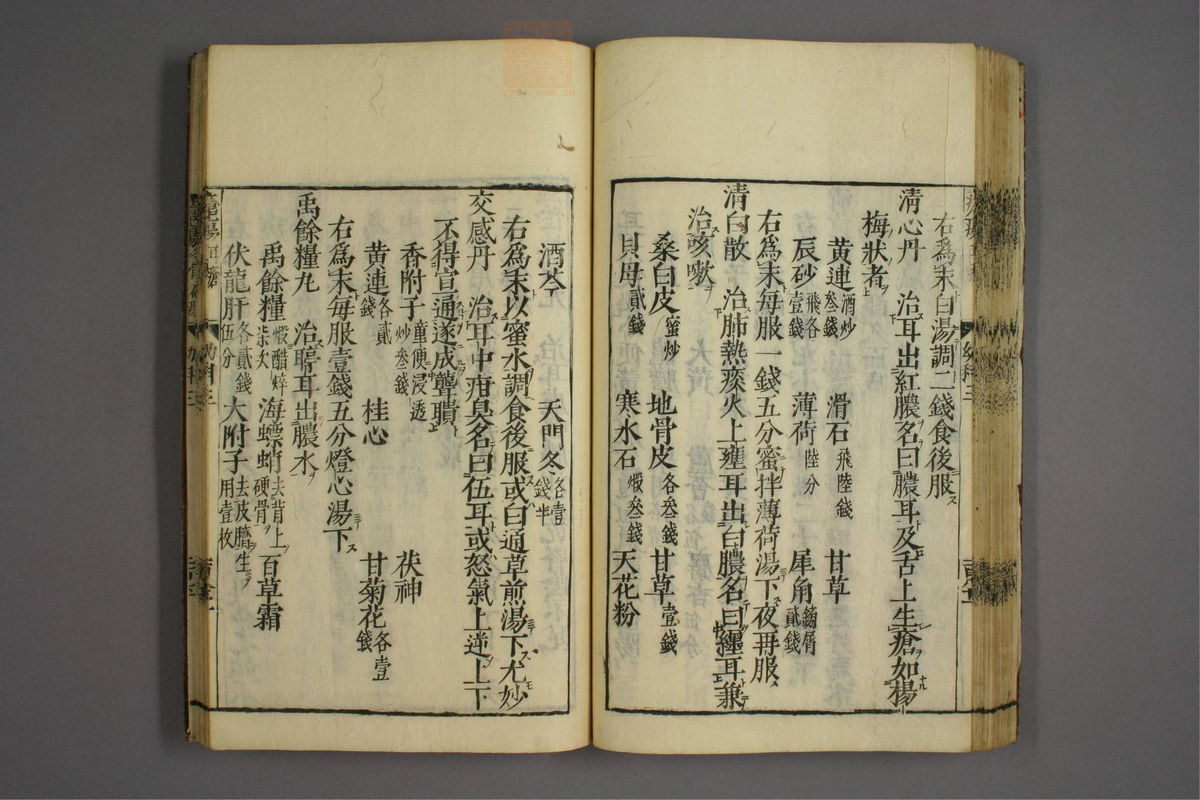 右爲末白湯調二錢食後服
清心丹　治耳出紅膿名曰膿耳及舌上生瘡如楊
梅狀者
黄連酒炒叁錢　滑石飛陸錢　甘草
辰砂飛各壹錢　薄荷陸分　犀角鎊屑貳錢
右爲末每服一錢五分蜜拌薄荷湯下夜再服
清白散　治肺熱痰火上壅耳出白膿名曰纏耳兼
治咳嗽
桑白皮蜜炒　地骨皮各叁錢　甘草壹錢
貝母貳錢　寒水石煅叁錢　天花粉
酒芩　天門冬各壹錢半
右爲末以蜜水調食後服或白通草煎湯下尤妙
交感丹　治耳中疳臭名曰伍耳或怒氣上逆上下
不得宣通遂成聾聵
香附子童便浸透炒叁錢　茯神
黄連各貳錢　桂心　甘菊花各壹錢
右爲末每服壹錢五分燈心湯下
禹餘糧丸　治聤耳出膿水
禹餘糧煅醋焠柒次　海螵蛸去背上硬骨　百草霜
伏龍肝各貳錢伍分　大附子去皮臍生用壹枚